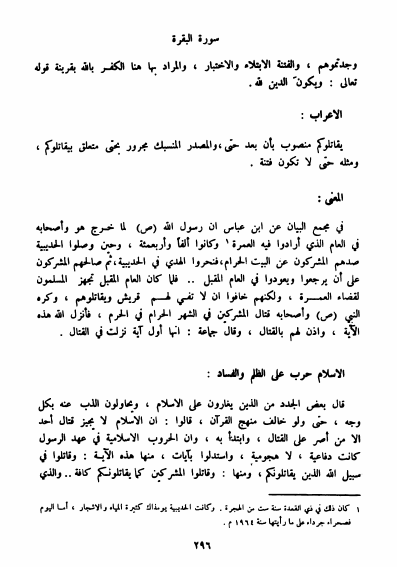 سورة البقرة
وجدتموهم ، والفتنة الابتلاء والاختبار ، والمراد بها هنا الكفر بالله بقرينة قوله
تعالى : ويكون الدين لله .
الاعراب :
يقاتلوكم منصوب بأن بعد حتى ، والمصدر المنسبك مجرور بحتى متعلق بيقاتلوكم ،
ومثله حتى لا تكون فتنة .
المعنى :
في مجمع البيان عن ابن عباس ان رسول الله (ص) لما خرج هو وأصحابه
في العام الذي أرادوا فيه العمرة ١ وكانوا ألفاً وأربعمئة ، وحين وصلوا الحديبية
صدهم المشركون عن البيت الحرام، فنحروا الهدي في الحديبية، ثم صالحهم المشركون
على أن يرجعوا ويعودوا في العام المقبل .. فلما كان العام المقبل تجهز المسلمون
لقضاء العمرة ، ولكنهم خافوا ان لا تفي لهم قريش ويقاتلوهم ، وكره
النبي (ص) وأصحابه قتال المشركين في الشهر الحرام في الحرم ، فأنزل الله هذه
الآية ، واذن لهم بالقتال ، وقال جماعة : انها أول آية نزلت في القتال .
الاسلام حرب على الظلم والفساد :
قال بعض الجدد من الذين يغارون على الاسلام ، ويحاولون الذب عنه بكل
وجه ، حتى ولو خالف منهج القرآن ، قالوا : ان الاسلام لا يجيز قتال أحد
الا من أصر على القتال ، وابتدأ به ، وان الحروب الاسلامية في عهد الرسول
كانت دفاعية ، لا هجومية ، واستدلوا بآيات ، منها هذه الآية : وقاتلوا في
سبيل الله الذين يقاتلونكم ، ومنها : وقاتلوا المشركين كما يقاتلونكم كافة .. والذي
١ كان ذلك في ذي القعدة سنة ست من الهجرة . وكانت الحديبية يومذاك كثيرة المياه والاشجار ، أما اليوم
فصحراء جرداء على ما رأيتها سنة ١٩٦٤ م .
٢٩٦